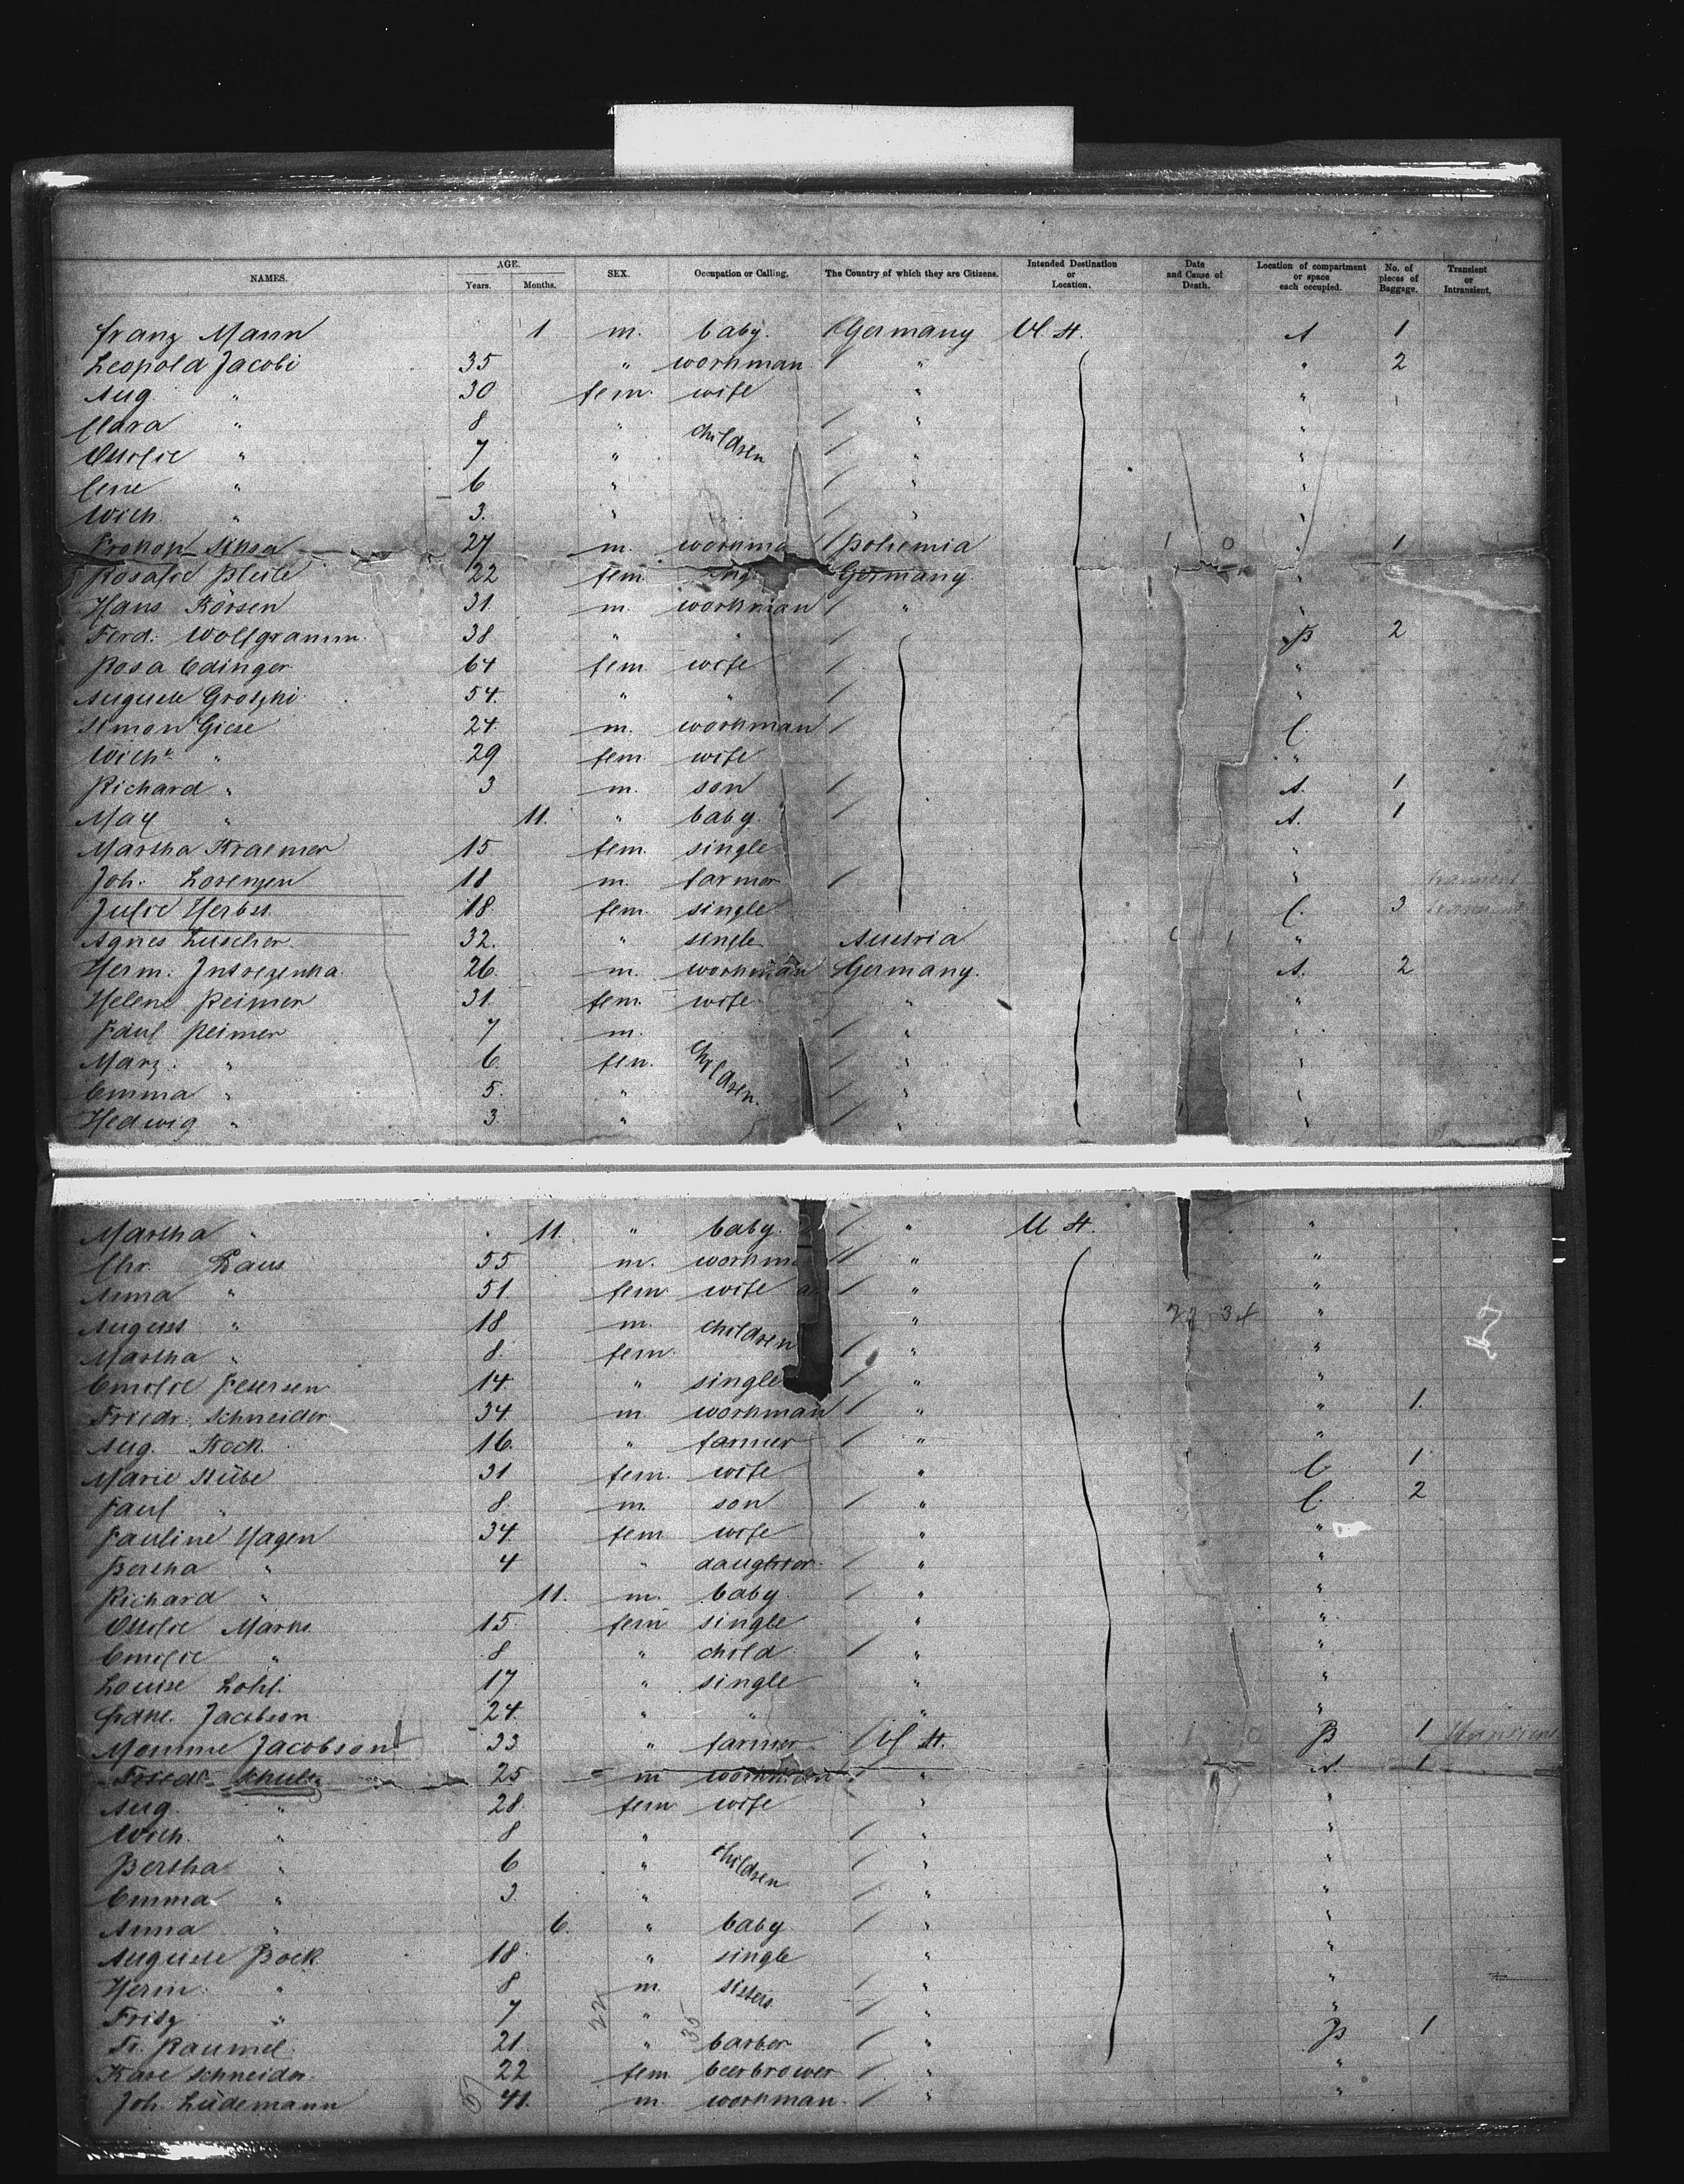 NAMES. AGE. Years. Months. SEX. Occupation or Calling. The Country of which they are Citizens. Intended Destination or Location. Date and Cause of Death. Location of compartment or space each occupied. No. of pieces of Baggage. Transient or Intransient.
Franz Mann 1 m. baby. Germany U. St. A 1
Leopold Jacobi 35 " workman " " 2
Aug. " 30 fem. wife " "
Clara " 8 " children " "
Ottilie " 7 " " "
" 6 " " "
Wilh. " 3. " " "
Prokop 27 m. Bohemia " 1
Rosalie 22 fem. Germany "
Hans Körsen 31. m. workman " "
Ferd. Wolfgramm. 38 " " B 2
Rosa Edinger 64 fem wife "
Auguste Grotzki 54. " " "
Simon Giese 24. m. workman C.
" 29 fem wife "
Richard " 3 m. son A. 1
Max " 11. " baby. A. 1
Martha Kraemer 15 fem. single "
Joh. Lorenzen 18 m. farmer " transient
Julie Herbst 18. fem. single C. 3
Agnes 32. " single Austria "
Herm. 26 m. workman Germany. A. 2
Helene Reimer 31. fem. wife " "
Paul Reimer 7 m. " "
" 6 fem. children. " "
Emma " 5. " " "
Hedwig " 3 " " "
Martha " 11. " baby. " U St. "
Chr. 55 m. " "
Anna " 51. fem wife " "
August " 18 m. children " 22 34 "
Martha " 8. fem. " "
Emilie Petersen 14. " single " "
Friedr. Schneider 34. m. workman " " 1.
Aug. Kock. 16. " farmer " "
Marie Stübe 31 fem. wife " C 1
Paul " 8. m. son " C. 2
Pauline Hagen 34. fem wife " "
Bertha " 4 " daughter " "
Richard " 11. m. baby. " "
Ottilie 15. fem single " "
Emilie " 8 " child " "
Louise 17 " single " "
Jacobson 24. " " " "
Momme Jacobson 33 " farmer U St. B 1 transient
Friedr. Schultz 25 m workman " A. 1
Aug. " 28. fem wife " "
Wilh. " 8 " " "
Bertha " 6 " children " "
Emma " 3. " " "
Anna " 6. " baby " "
Auguste Bock 18. " single " "
Herm. " 8 m. sisters " "
Fritz " 7 " " "
Fr. Raumel. 21. " barber " B 1
Schneider. 22 fem beerbrower " "
Joh. Lüdemann 41. m. workman. " "